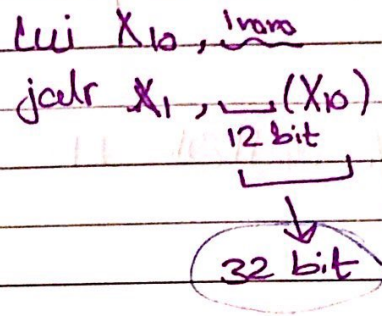 lui X10,
jalr X1, ___(X10)
12 bit
32 bit